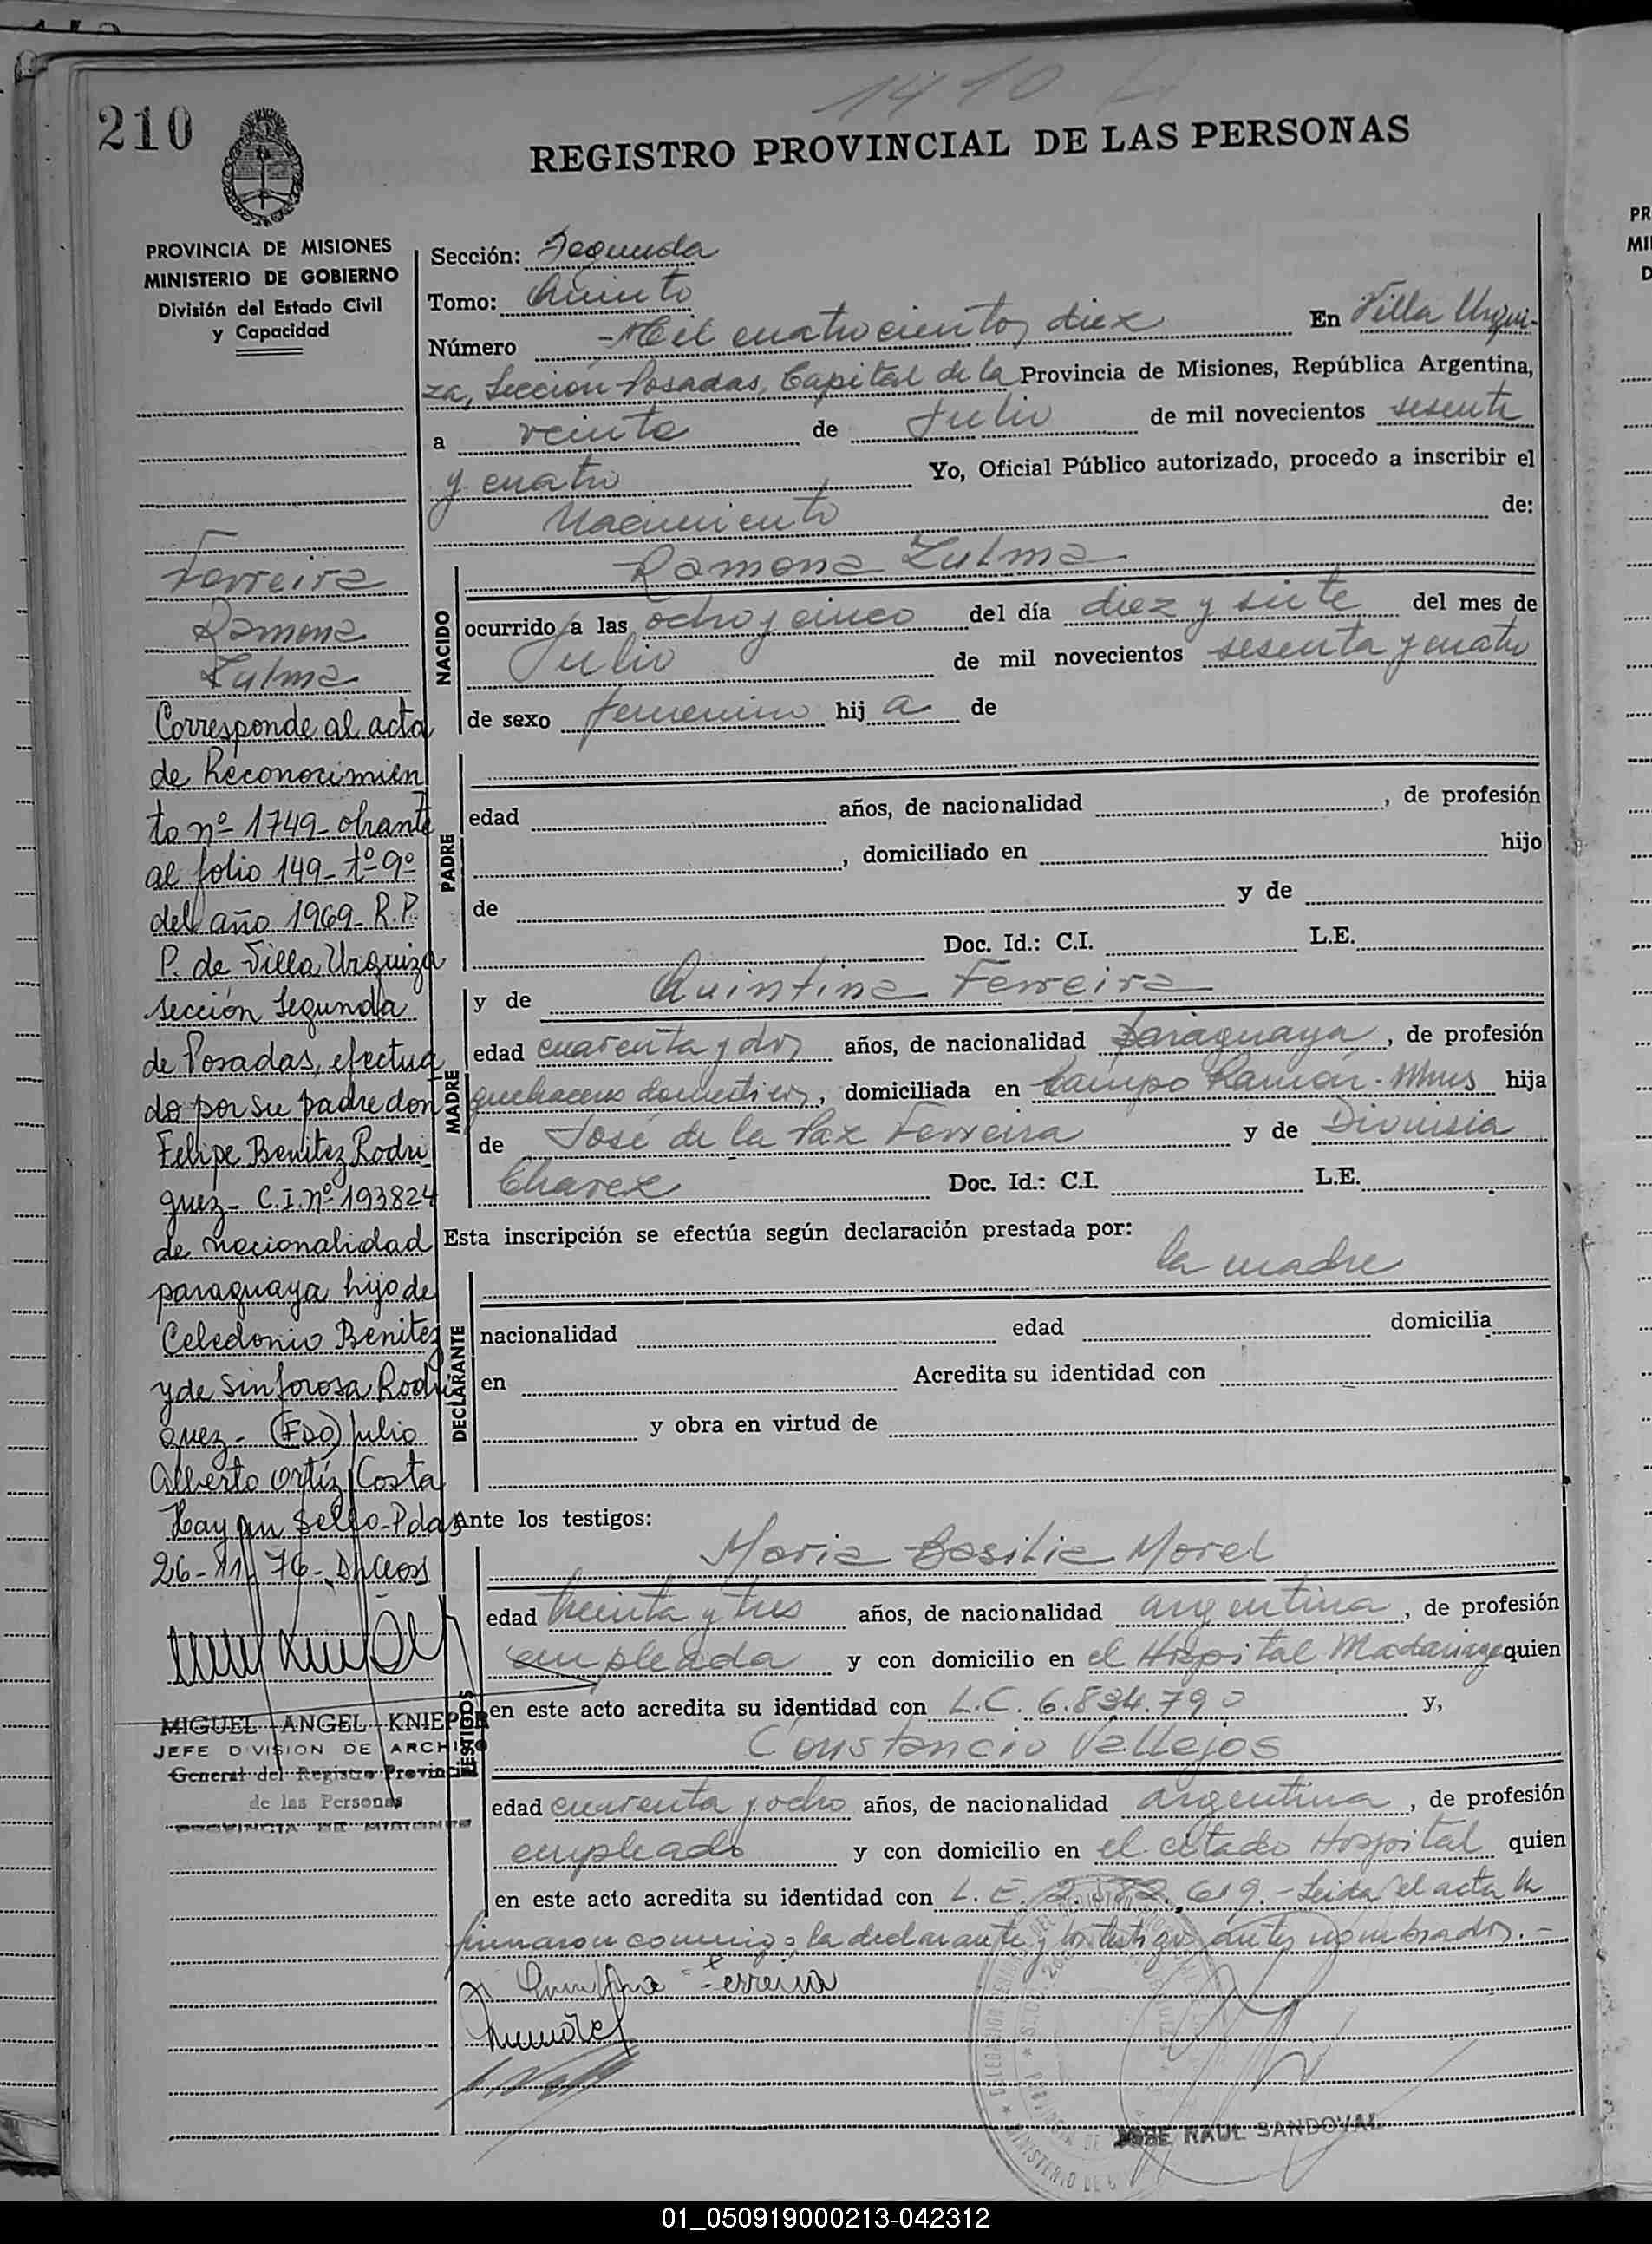 1410
210
REGISTRO PROVINCIAL DE LAS PERSONAS
PROVINCIA DE MISIONES
MINISTERIO DE GOBIERNO
División del Estado Civil
y Capacidad
Ferreira
Ramona
Zulma
Corresponde al acta
de Reconocimien
to nº 1749- obrante
al folio 149- tº 9º
del año 1969- R.P.
P. de Villa Urquiza
sección Segunda
de Posadas, efectua
do por su padre don
Felipe Benitez Rodri
guez- C.I. nº 193824
de nacionalidad
paraguaya hijo de
Celedonio Benitez
y de Sinforosa Rodri
guez- (FDO) Julio
Alberto Ortíz Costa
Hay un Sello- Pdas
26-11-76-
MIGUEL ANGEL KNIEPER
JEFE DIVISION DE ARCHIVO
General del Registro Provincial
de las Personas
PROVINCIA DE MISIONES
Sección: Segunda
Tomo: Quinto
Número -Mil cuatrocientos diez En Villa Urqui-
za, Sección Posadas, Capital de la Provincia de Misiones, República Argentina,
a veinte de Julio de mil novecientos sesenta
y cuatro Yo, Oficial Público autorizado, procedo a inscribir el
Nacimiento de:
NACIDO
Ramona Zulma
ocurrido a las ocho y cinco del día diez y siete del mes de
Julio de mil novecientos sesenta y cuatro
de sexo femenino hij a de
PADRE
edad años, de nacionalidad , de profesión
, domiciliado en hijo
de y de
Doc. Id.: C.I. L.E.
MADRE
y de Quintina Ferreira
edad cuarenta y dos años, de nacionalidad Paraguaya , de profesión
quehaceres domésticos, domiciliada en Campo Ramón- Mnes hija
de José de la Paz Ferreira y de Divinisia
Chavez Doc. Id.: C.I. L.E.
Esta inscripción se efectúa según declaración prestada por:
la madre
DECLARANTE
nacionalidad edad domicilia
en Acredita su identidad con
y obra en virtud de
Ante los testigos:
TESTIGOS
Maria Basilia Morel
edad treinta y tres años, de nacionalidad argentina , de profesión
empleada y con domicilio en el Hospital Madariaga quien
en este acto acredita su identidad con L.C. 6.834.790 y,
Constancio Vallejos
edad cuarenta y ocho años, de nacionalidad argentina , de profesión
empleado y con domicilio en el citado Hospital quien
en este acto acredita su identidad con L.E. 619.- Leida el acta la
firmaron conmigo la declarante y los testigos antes nombrados.-
Quintina Ferreira
JOSE RAUL SANDOVAL
01_050919000213-042312